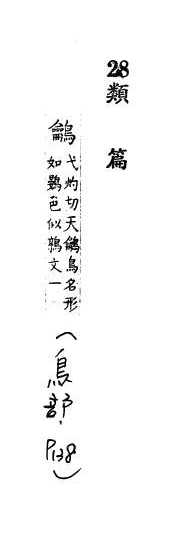 28類篇
鸙弋灼切天鸙鳥名形
如鷃色似鶉文一
(鳥部,P138)